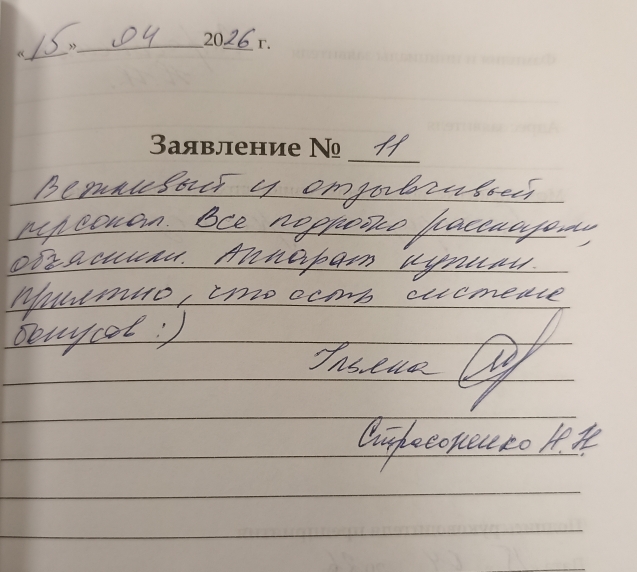 «15» 04 2026 г.
Заявление № 11
Вежливый и отзывчивый
персонал. Все подробно рассказали,
объяснили. Аппарат купили.
Приятно, что есть система
бонусов :)
Ульяна
Н. Н.